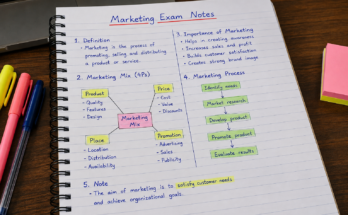 Marketing Exam Notes
1. Definition
- Marketing is the process of
promoting, selling and distributing
a product or service.
2. Marketing Mix (4Ps)
Product
- Quality
- Features
- Design
Price
- Cost
- Value
- Discounts
Marketing
Mix
Place
- Location
- Distribution
- Availability
Promotion
- Advertising
- Sales
- Publicity
3. Importance of Marketing
- Helps in creating awareness
- Increases sales and profit
- Builds customer satisfaction
- Creates strong brand image
4. Marketing Process
Identify needs
Market research
Develop product
Promote product
Evaluate results
5. Note
- The aim of marketing is to satisfy customer needs
and achieve organizational goals.